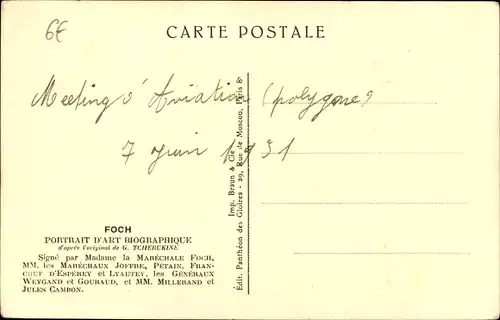 6€
CARTE POSTALE
Meeting d'Aviation (polygone)
7 juin 1931
FOCH
PORTRAIT D'ART BIOGRAPHIQUE
d'après l'original de G. TCHERUKINE
Signé par Madame la MARÉCHALE FOCH,
MM. les MARÉCHAUX JOFFRE, PÉTAIN, FRAN-
CHET D'ESPÉREY et LYAUTEY, les GÉNÉRAUX
WEYGAND et GOURAUD, et MM. MILLERAND et
JULES CAMBON.
Édit. Panthéon des Gloires - 29, Rue de Moscou, Paris 8e
Imp. Braun & Cie